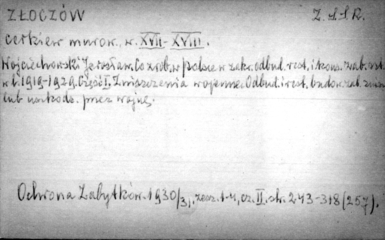 ZŁOCZÓW Z.SSR.
cerkiew murow. w. XVII-XVIII.
Wojciechowski Jarosław. Co zrob. w polsce w zakr. odbud. rest. i kons. zab. szt.
w l. 1919-1929. Część I. Zniszczenia wojenne. Odbud. i rest. budow. zab. zniszcz.
lub uszkodz. przez wojnę.
Ochrona Zabytków. 1930/31, zesz. 1-4, cz. II. str. 243-318 (257).